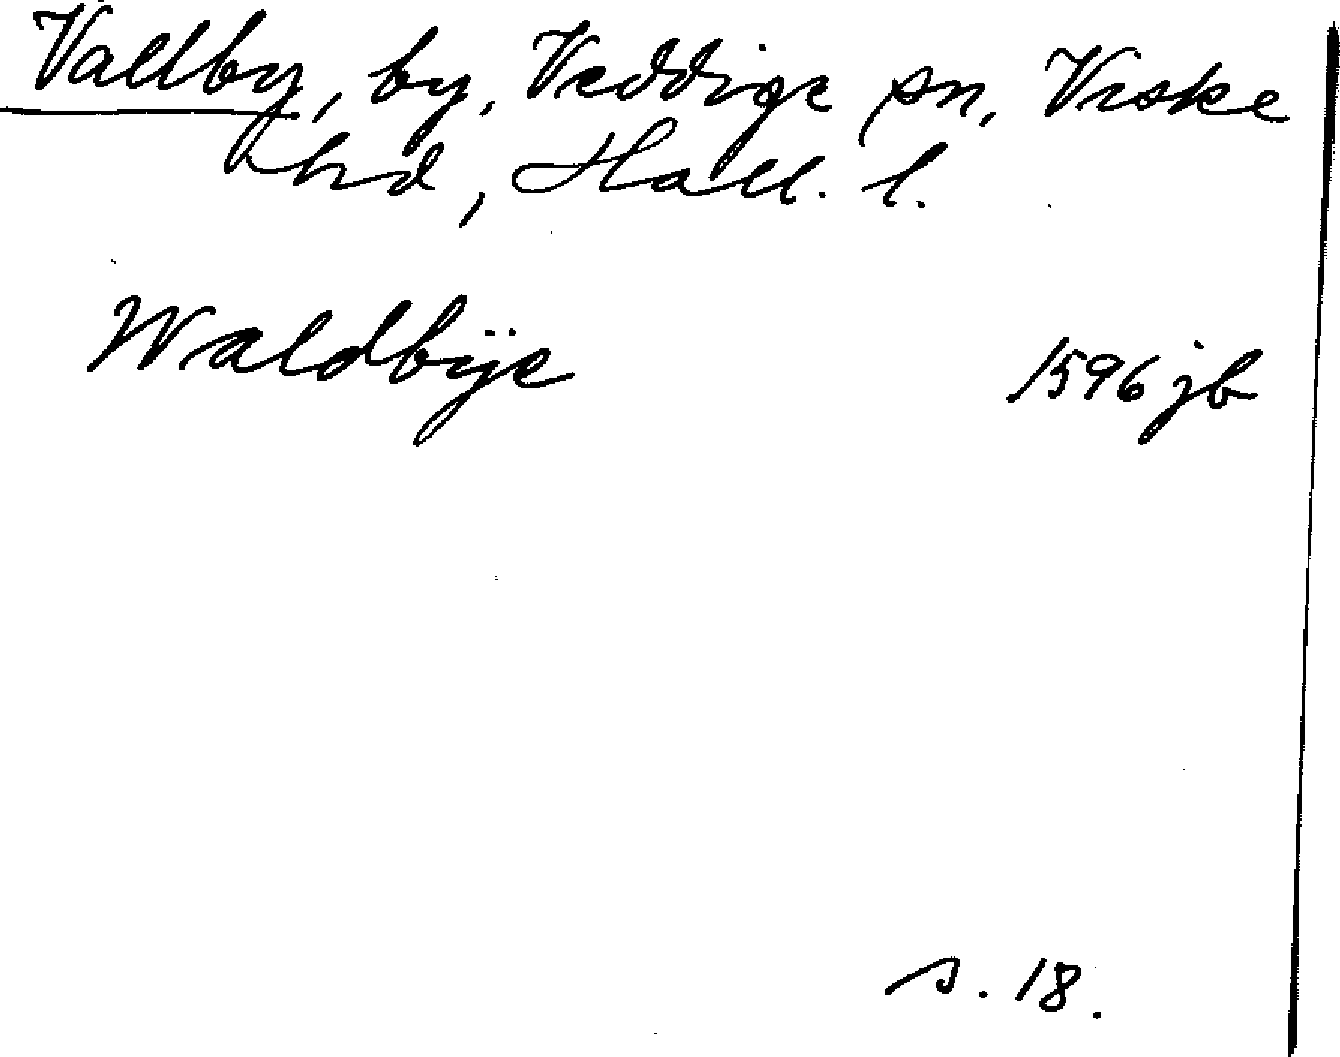 Vallby, by, Veddige sn, Viske
hrd, Hall. l.
Waldbÿe 1596 jb
s. 18.